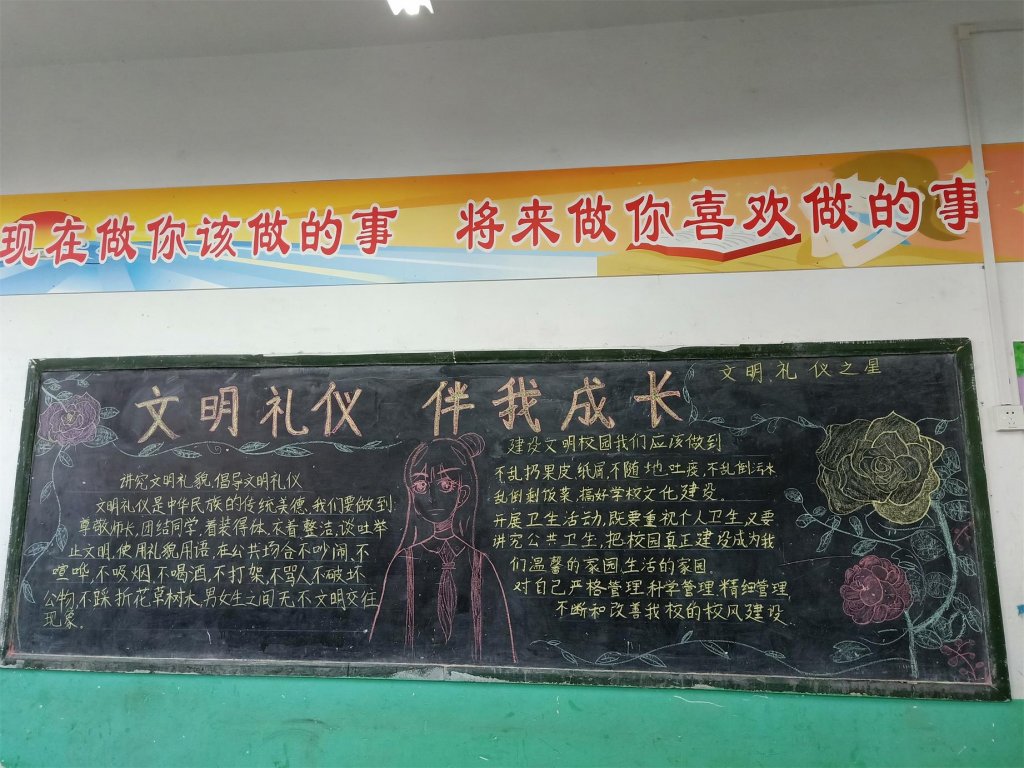 现在做你该做的事 将来做你喜欢做的事
文明礼仪 伴我成长
文明礼仪之星
讲究文明礼貌,倡导文明礼仪
文明礼仪是中华民族的传统美德,我们要做到:
尊敬师长,团结同学,着装得体,衣着整洁,谈吐举
止文明,使用礼貌用语,在公共场合不吵闹,不
喧哗,不吸烟,不喝酒,不打架,不骂人不破坏
公物,不踩折花草树木,男女生之间无不文明交往
现象.
建设文明校园我们应该做到
不乱扔果皮,纸屑,不随地吐痰,不乱倒污水
乱倒剩饭菜,搞好学校文化建设.
开展卫生活动,既要重视个人卫生,又要
讲究公共卫生,把校园真正建设成为我
们温馨的家园,生活的家园.
对自己严格管理,科学管理,精细管理,
不断和改善我校的校风建设